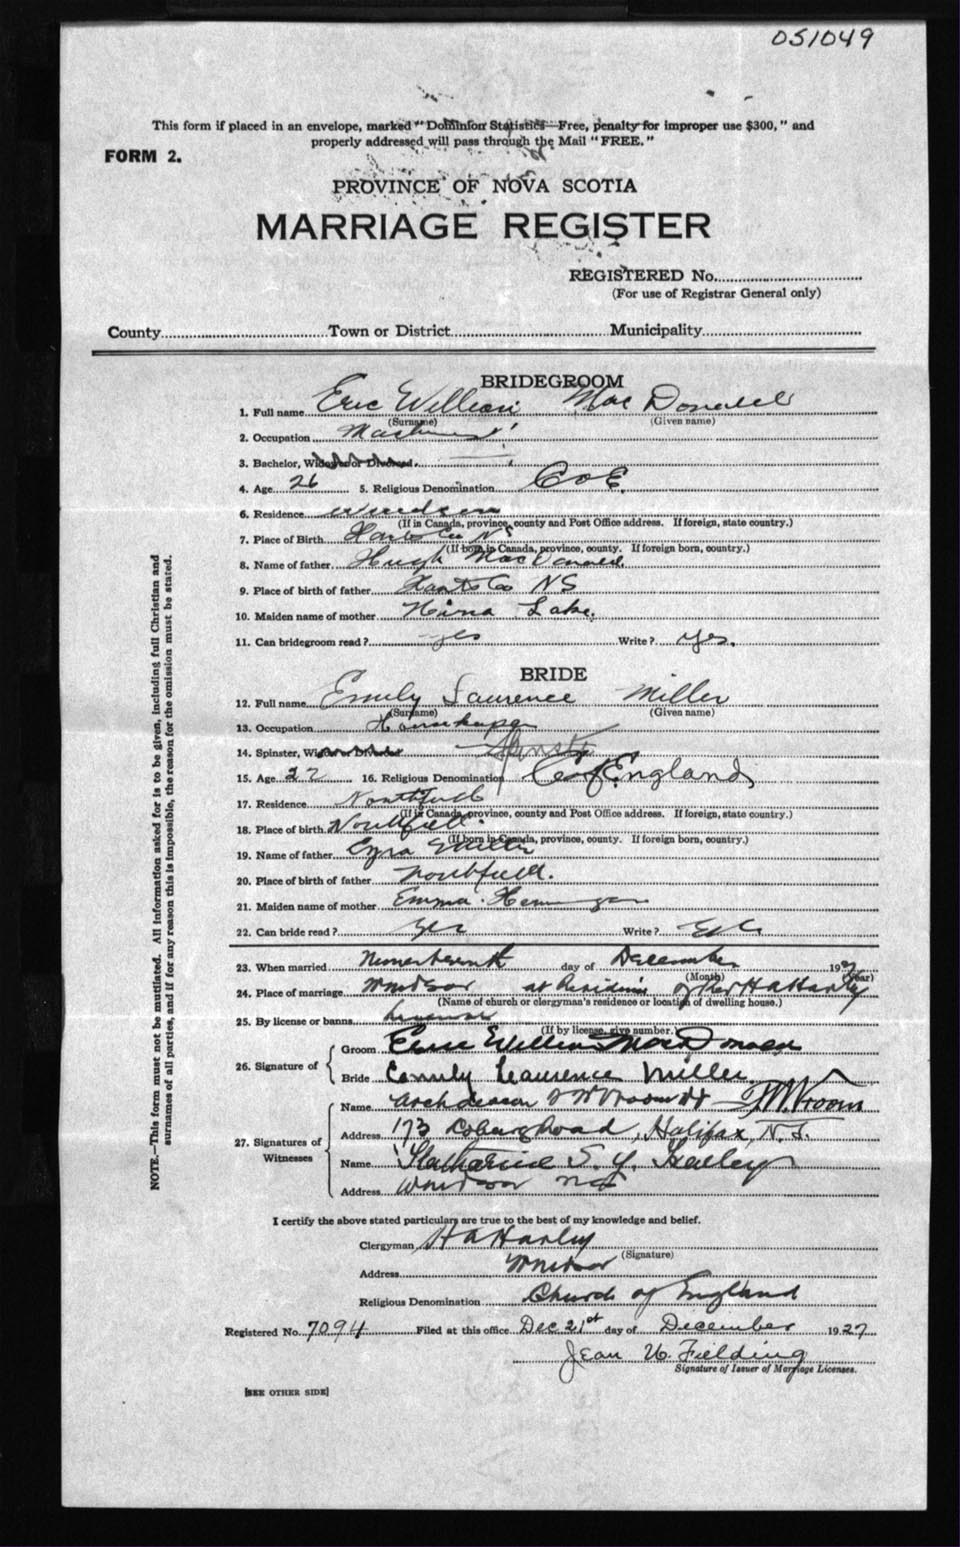 051049
This form if placed in an envelope, marked "Dominion Statistics—Free, penalty for improper use $300," and
properly addressed will pass through the Mail "FREE."
FORM 2.
PROVINCE OF NOVA SCOTIA
MARRIAGE REGISTER
REGISTERED No.
(For use of Registrar General only)
County Town or District Municipality
BRIDEGROOM
1. Full name Eric William Mac Donald
(Surname) (Given name)
2. Occupation Machinist
3. Bachelor, Widower or Divorced.
4. Age 26 5. Religious Denomination C of E.
6. Residence Windsor
(If in Canada, province, county and Post Office address. If foreign, state country.)
7. Place of Birth Hants Co NS
(If born in Canada, province, county. If foreign born, country.)
8. Name of father Hugh MacDonald
9. Place of birth of father Hants Co NS
10. Maiden name of mother Nina Lake.
11. Can bridegroom read? yes Write? yes.
BRIDE
12. Full name Emily Laurence Miller
(Surname) (Given name)
13. Occupation Housekeeper
14. Spinster, Widow or Divorced Spinster
15. Age 22 16. Religious Denomination C of England
17. Residence Northfield
(If in Canada, province, county and Post Office address. If foreign, state country.)
18. Place of birth Northfield.
(If born in Canada, province, county. If foreign born, country.)
19. Name of father Ezra Miller
20. Place of birth of father Northfield.
21. Maiden name of mother Emma
22. Can bride read? Yes Write? Yes
23. When married Nineteenth day of December 192
(Month) (Year)
24. Place of marriage Windsor at Residence of Rev H A Harley
(Name of church or clergyman's residence or location of dwelling house.)
25. By license or banns License
(If by license, give number.)
26. Signature of
Groom Eric William MacDonald
Bride Emily Laurence Miller
27. Signatures of Witnesses
Name Archdeacon Vroom
Address 173 Coburg Road, Halifax, N.S.
Name Katharine S. Y. Harley
Address Windsor NS
I certify the above stated particulars are true to the best of my knowledge and belief.
Clergyman H A Harley
(Signature)
Address Windsor
Religious Denomination Church of England
Registered No. 7094 Filed at this office Dec 21st day of December 1927
Jean W. Fielding
Signature of Issuer of Marriage Licenses.
[SEE OTHER SIDE]
NOTE.—This form must not be mutilated. All information asked for is to be given, including full Christian and
surnames of all parties, and if for any reason this is impossible, the reason for the omission must be stated.